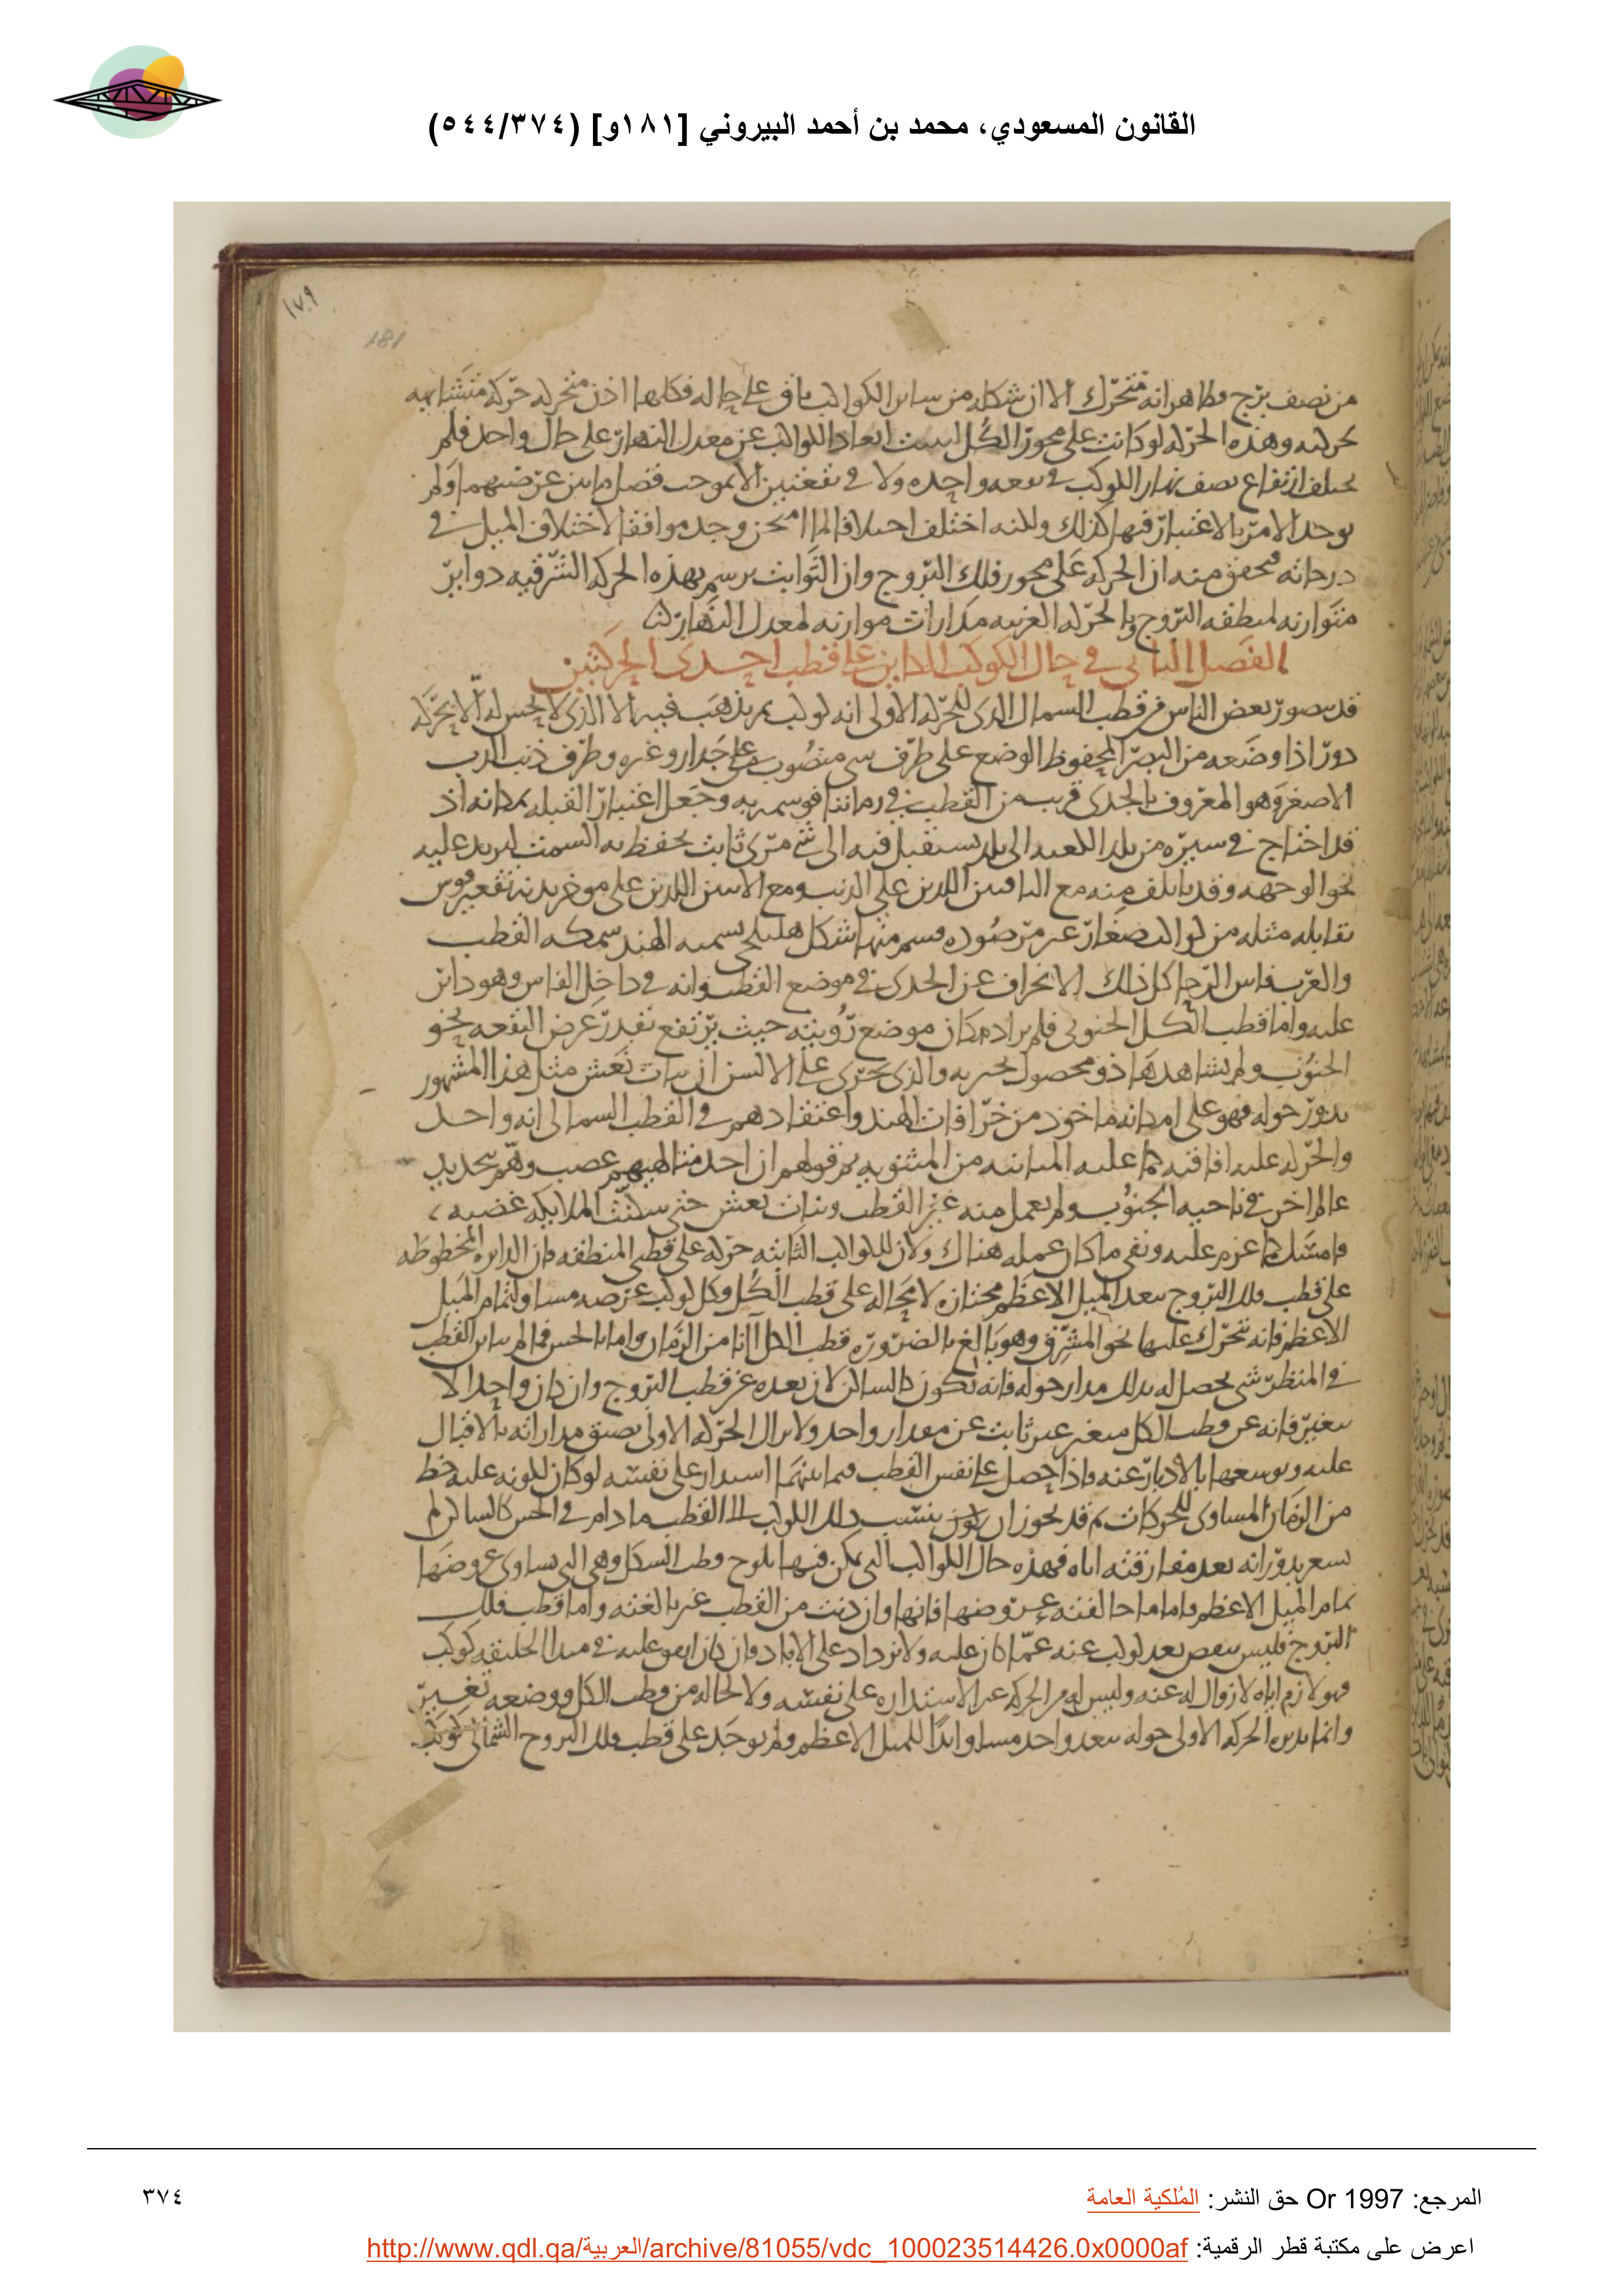 القانون المسعودي، محمد بن أحمد البيروني [١٨١و] (٥٤٤/٣٧٤)
١٧٩
181
من نصف برج وظاهر انه متحرك الا ان شكله من ساىر الكواكب باق على حاله فكلها اذن متحركه حركه متشابهه
بحركته وهذه الحركه لو كانت على محور الكل لىست ابعاد الكواكب عن معدل النهار على حال واحد فلم
يختلف ارتفاع نصف نهار الكوكب في بقعه واحده ولا في بقعتين الا بموجب فضل ما بين عرضيهما ولم
يوجد الامر بالاعتبار فيها كذلك ولكنه اختلف اختلافا لما امتحن وجد موافقا لاختلاف الميل في
درجاته فتحقق منه ان الحركه على محور فلك البروج وان الثوابت ترسم بهذه الحركه الشرقيه دواير
متوازيه لمنطقه البروج وبالحركه الغربيه مدارات موازيه لمعدل النهار
الفصل الثاني في حال الكوكب الداىر على قطب احدى الحركتين
قد تصور بعض الناس في قطب الشمال الذي للحركه الاولى انه كوكب
دور اذا وضعه من البصر المحفوظ الوضع على طرف شي منصوب على جدار وغيره وطرف ذنب الدب
الاصغر وهو المعروف بالجدى قريب من القطب في زماننا فوسم به وجعل اعتبار القبله بمكانه اذ
قد احتاج في سيره من بلد الكعبه الى بلد يستقبل فيه الى شي مرى ثابت يحفظ به السمت
نحو الوجهه وقد ياتلف منه مع الباقيين اللذين على الذنب ومع الاثنين اللذين على موخر بدنه تقعير قوس
تقابله مثله من كواكب صغار غير مرصوده فيتم منها شكل هليلجي يسميه الهند سمكه القطب
والعرب فاس الرحا كل ذلك لانحراف عن الجدى في موضع القطب وانه في داخل الفاس وهو داىر
عليه واما قطب الكل الجنوبي فلم مكان موضع رويته حيث يرتفع بقدر عرض البقعه نحو
الجنوب ولم يشاهدها ذو محصول بخبر به والذي يجرى على الالسن ان بنات نعش مثل هذا المشهور
يدور حوله فهو على امكانه ماخوذ من خرافات الهند واعتقادهم في القطب الشمالى انه واحد
والحركه عليه افاقيه من المثنويه ثم قولهم ان احد متالهيهم غضب وهم بتجديد
عالم اخر في ناحيه الجنوب ولم يعمل منه غير القطب وبنات نعش حتى سكنت الملايكه غضبه
فامسك عما عزم عليه وبقى ما كان عمله هناك ولان للكواكب الثابته حركه على قطبى المنطقه فان الدايره المخطوطه
على قطب فلك البروج ببعد الميل الاعظم مجتازه لا محاله على قطب الكل وكل كوكب عرضه مساو لتمام الميل
الاعظم فانه يتحرك عليها نحو المشرق وهو بالغ بالضروره قطب الكل آنا من الزمان واما بالحس فما لم يباىن القطب
في المنظر شى يحصل له بذلك مدار حوله فانه يكون كالساكن لان بعده عن قطب البروج وان كان واحدا لا
يتغير فانه عن قطب الكل متغير غير ثابت عن مقدار واحد ولا يزال الحركه الاولى يضيق مداراته بالاقبال
عليه ويوسعها بالادبار عنه واذا حصل على نفس القطب فيما بينهما استدار على نفسه لو كان لكونه عليه حظ
من الزمان المساوى للحركات ثم قد يجوز ان ينسب ذلك الكوكب الى القطب ما دام في الحس كالساكن لم
يشعر بدورانه بعد مفارقته اياه فهذه حال الكواكب التى يمكن فيها بلوغ قطب الكل وهى التى يساوى عروضها
تمام الميل الاعظم واما ما خالفته عروضها فانها وان دنت من القطب غير بالغته واما قطب فلك
البروج فليس ينقص بعد كوكب عنه عما كان عليه ولا يزداد على الاباد وان كان اتفق عليه في مبدا الخليقه كوكب
فهو لازم اياه لا زوال له عنه وليس له من الحركه غير الاستداره على نفسه ولا لحاله من قطب الكل ووضعه تغيير
وانما يديره الحركه الاولى حوله ببعد واحد مساو ابدا للميل الاعظم ولم يوجد على قطب فلك البروج الشمالى كوكب
المرجع: Or 1997 حق النشر: المُلكية العامة
٣٧٤
اعرض على مكتبة قطر الرقمية: http://www.qdl.qa/العربية/archive/81055/vdc_100023514426.0x0000af